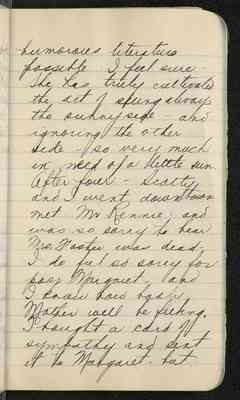 humorous literature
possible. I feel sure
she has truly cultivated
the art of seeing always
the sunny side - and
ignoring the other
side - so very much
in need of a little sun.
After four - Scotty
and I went downtown
met Mr Rennie, and
was so sorry to hear
Mrs. was dead,
I do feel so sorry for
poor Margaret, and
I know how badly
Mother will be feeling.
I bought a card of
sympathy and sent
it to Margaret but